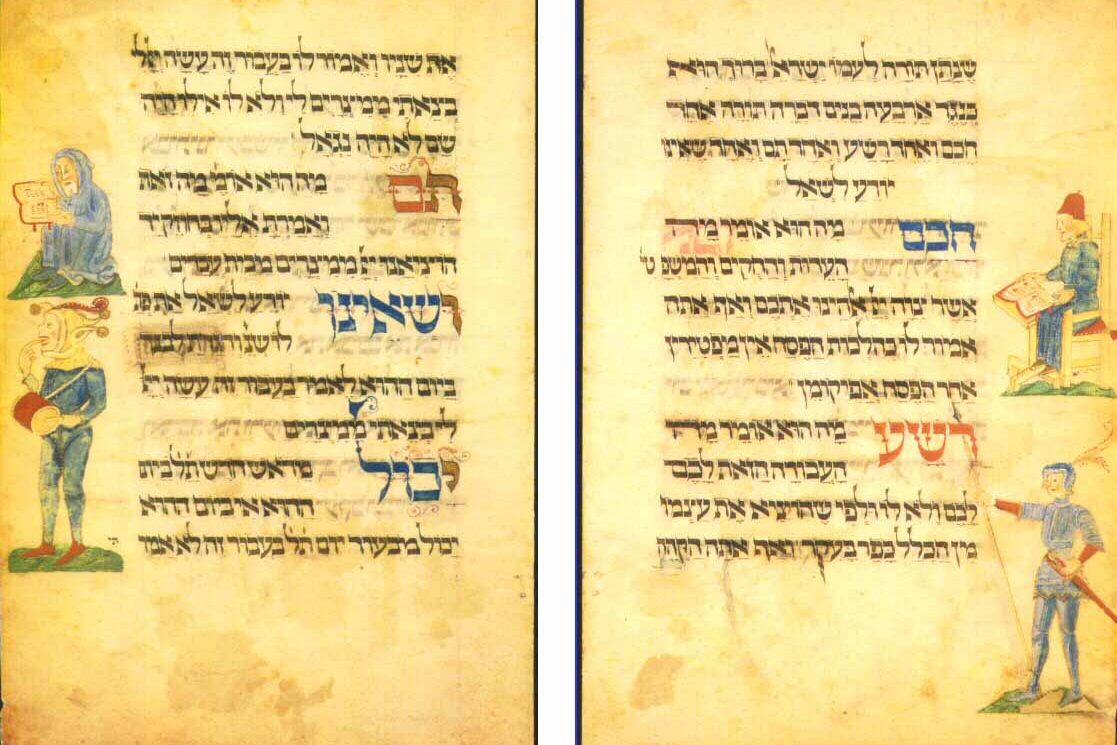 שנתן תורה לעמו ישראל ברוך הוא
כנגד ארבעה בנים דברה תורה אחד
חכם ואחד רשע ואחד תם ואחד שאינו
יודע לשאל
חכם מה הוא אומ' מה
העדות והחקים והמשפטי'
אשר צוה יי' אלהינו אתכם ואף אתה
אמור לו כהלכות הפסח אין מפטירין
אחר הפסח אפיקומן
רשע מה הוא אומר מה
העבודה הזאת לכם
לכם ולא לו ולפי שהוציא את עצמו
מן הכלל כפר בעקר ואף אתה הקהה
את שניו ואמור לו בעבור זה עשה יי' לי
בצאתי ממצרים לי ולא לו אילו היה
שם לא היה נגאל
תם מה הוא אומ' מה זאת
ואמרת אליו בחוזק יד
הוציאנו יי' ממצרים מבית עבדים
ושאינו יודע לשאל את פת
לו שנ' והגדת לבנך
ביום ההוא לאמר בעבור זה עשה יי'
לי בצאתי ממצרים
יכול מראש חדש תל' בית
ההוא אי ביום ההוא
יכול מבעוד יום תל' בעבור זה לא אמר